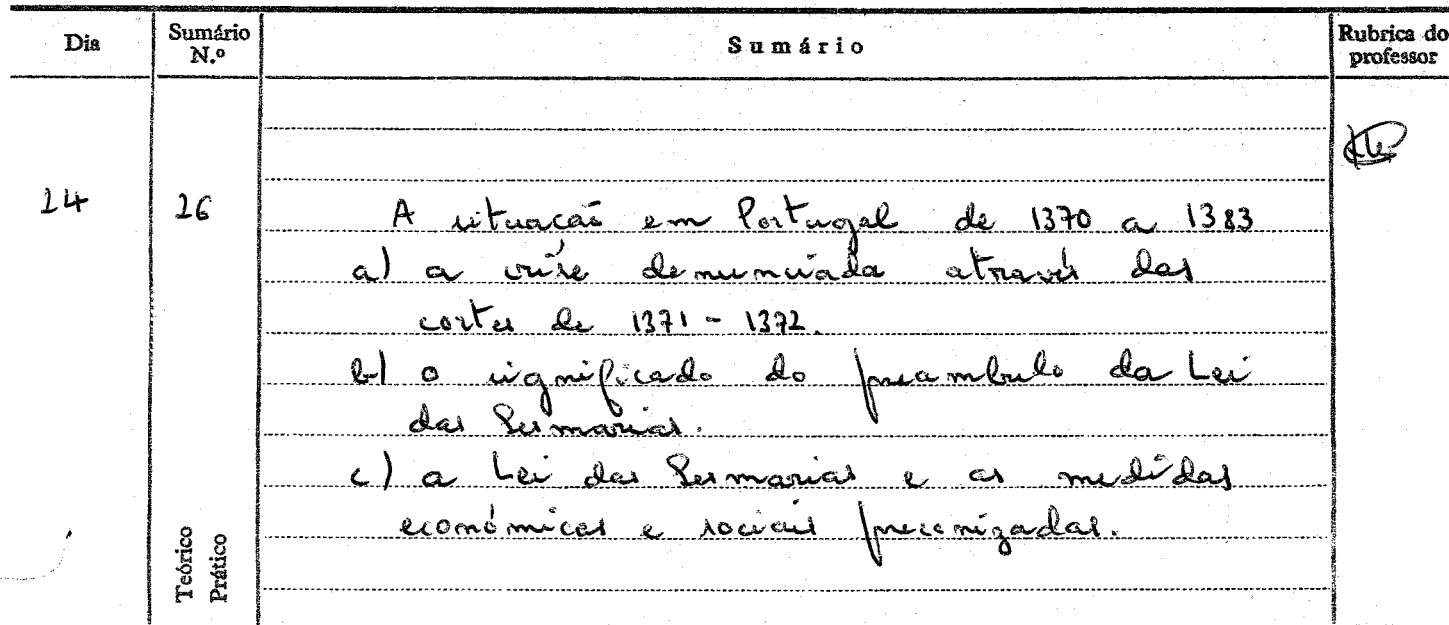 Dia
Sumário N.º
Sumário
Rubrica do professor
24
26
A situação em Portugal de 1370 a 1383
a) a crise denunciada através das
cortes de 1371 - 1372.
b) o significado do preambulo da Lei
das Sesmarias.
c) a Lei das Sesmarias e as medidas
económicas e sociais preconizadas.
Teórico
Prático